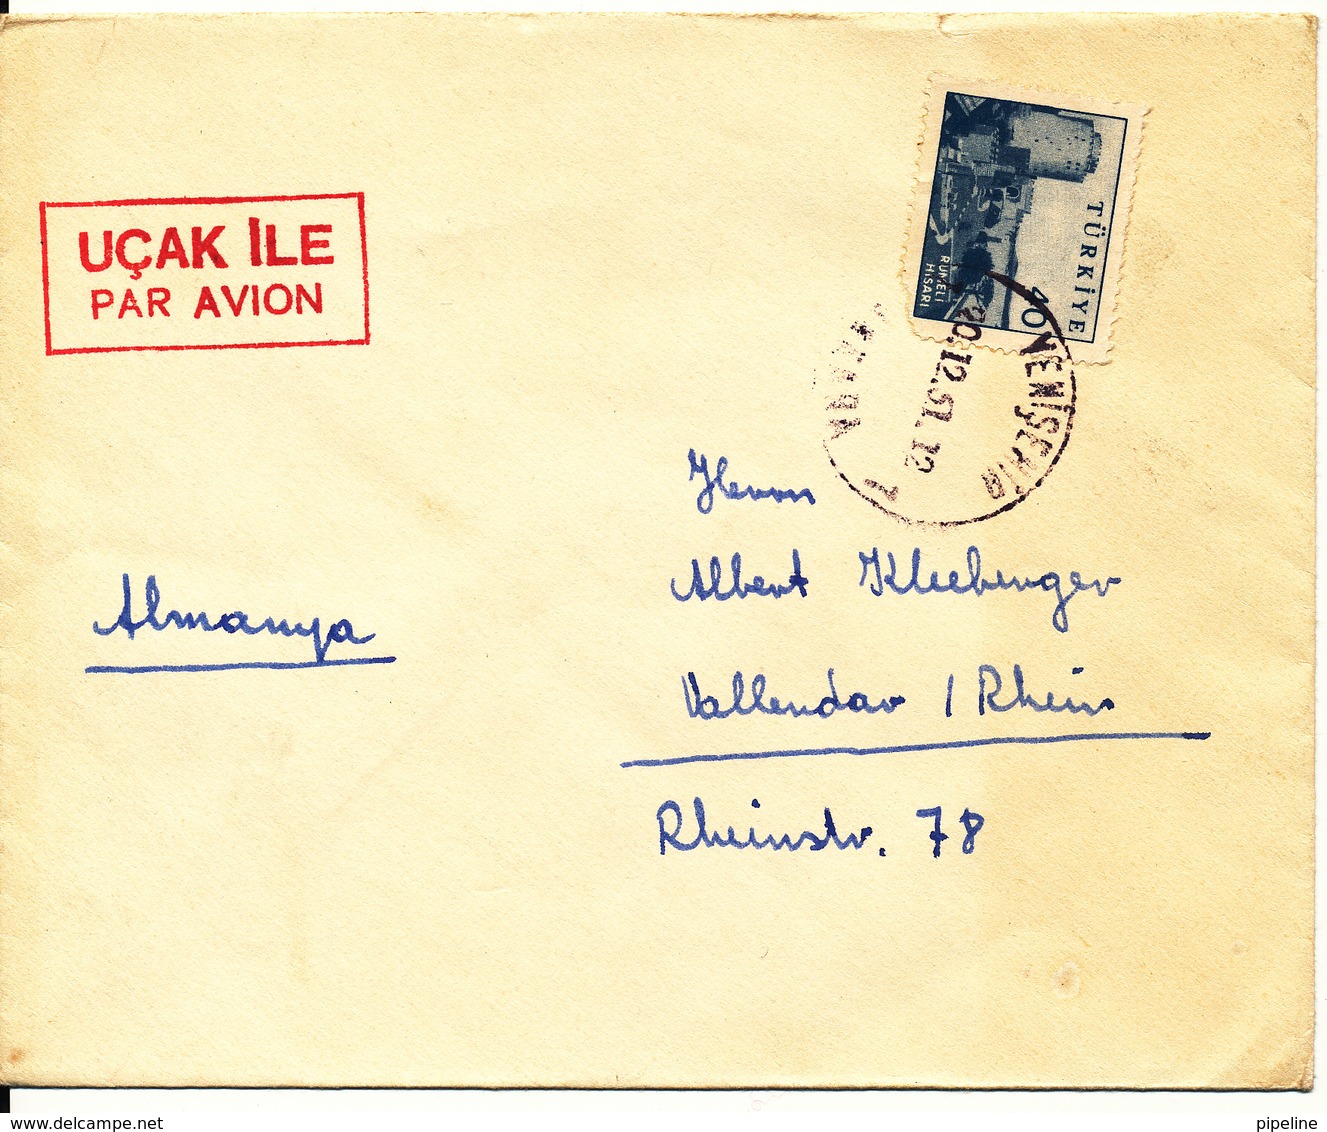 UÇAK İLE
PAR AVION
TÜRKİYE
40
RUMELİ
HİSARI
YENİŞEHİR
20.12.61.12
Herrn
Albert Kleebenger
Vallendar / Rhein
Rheinstr. 78
Almanya
pipeline
delcampe.net